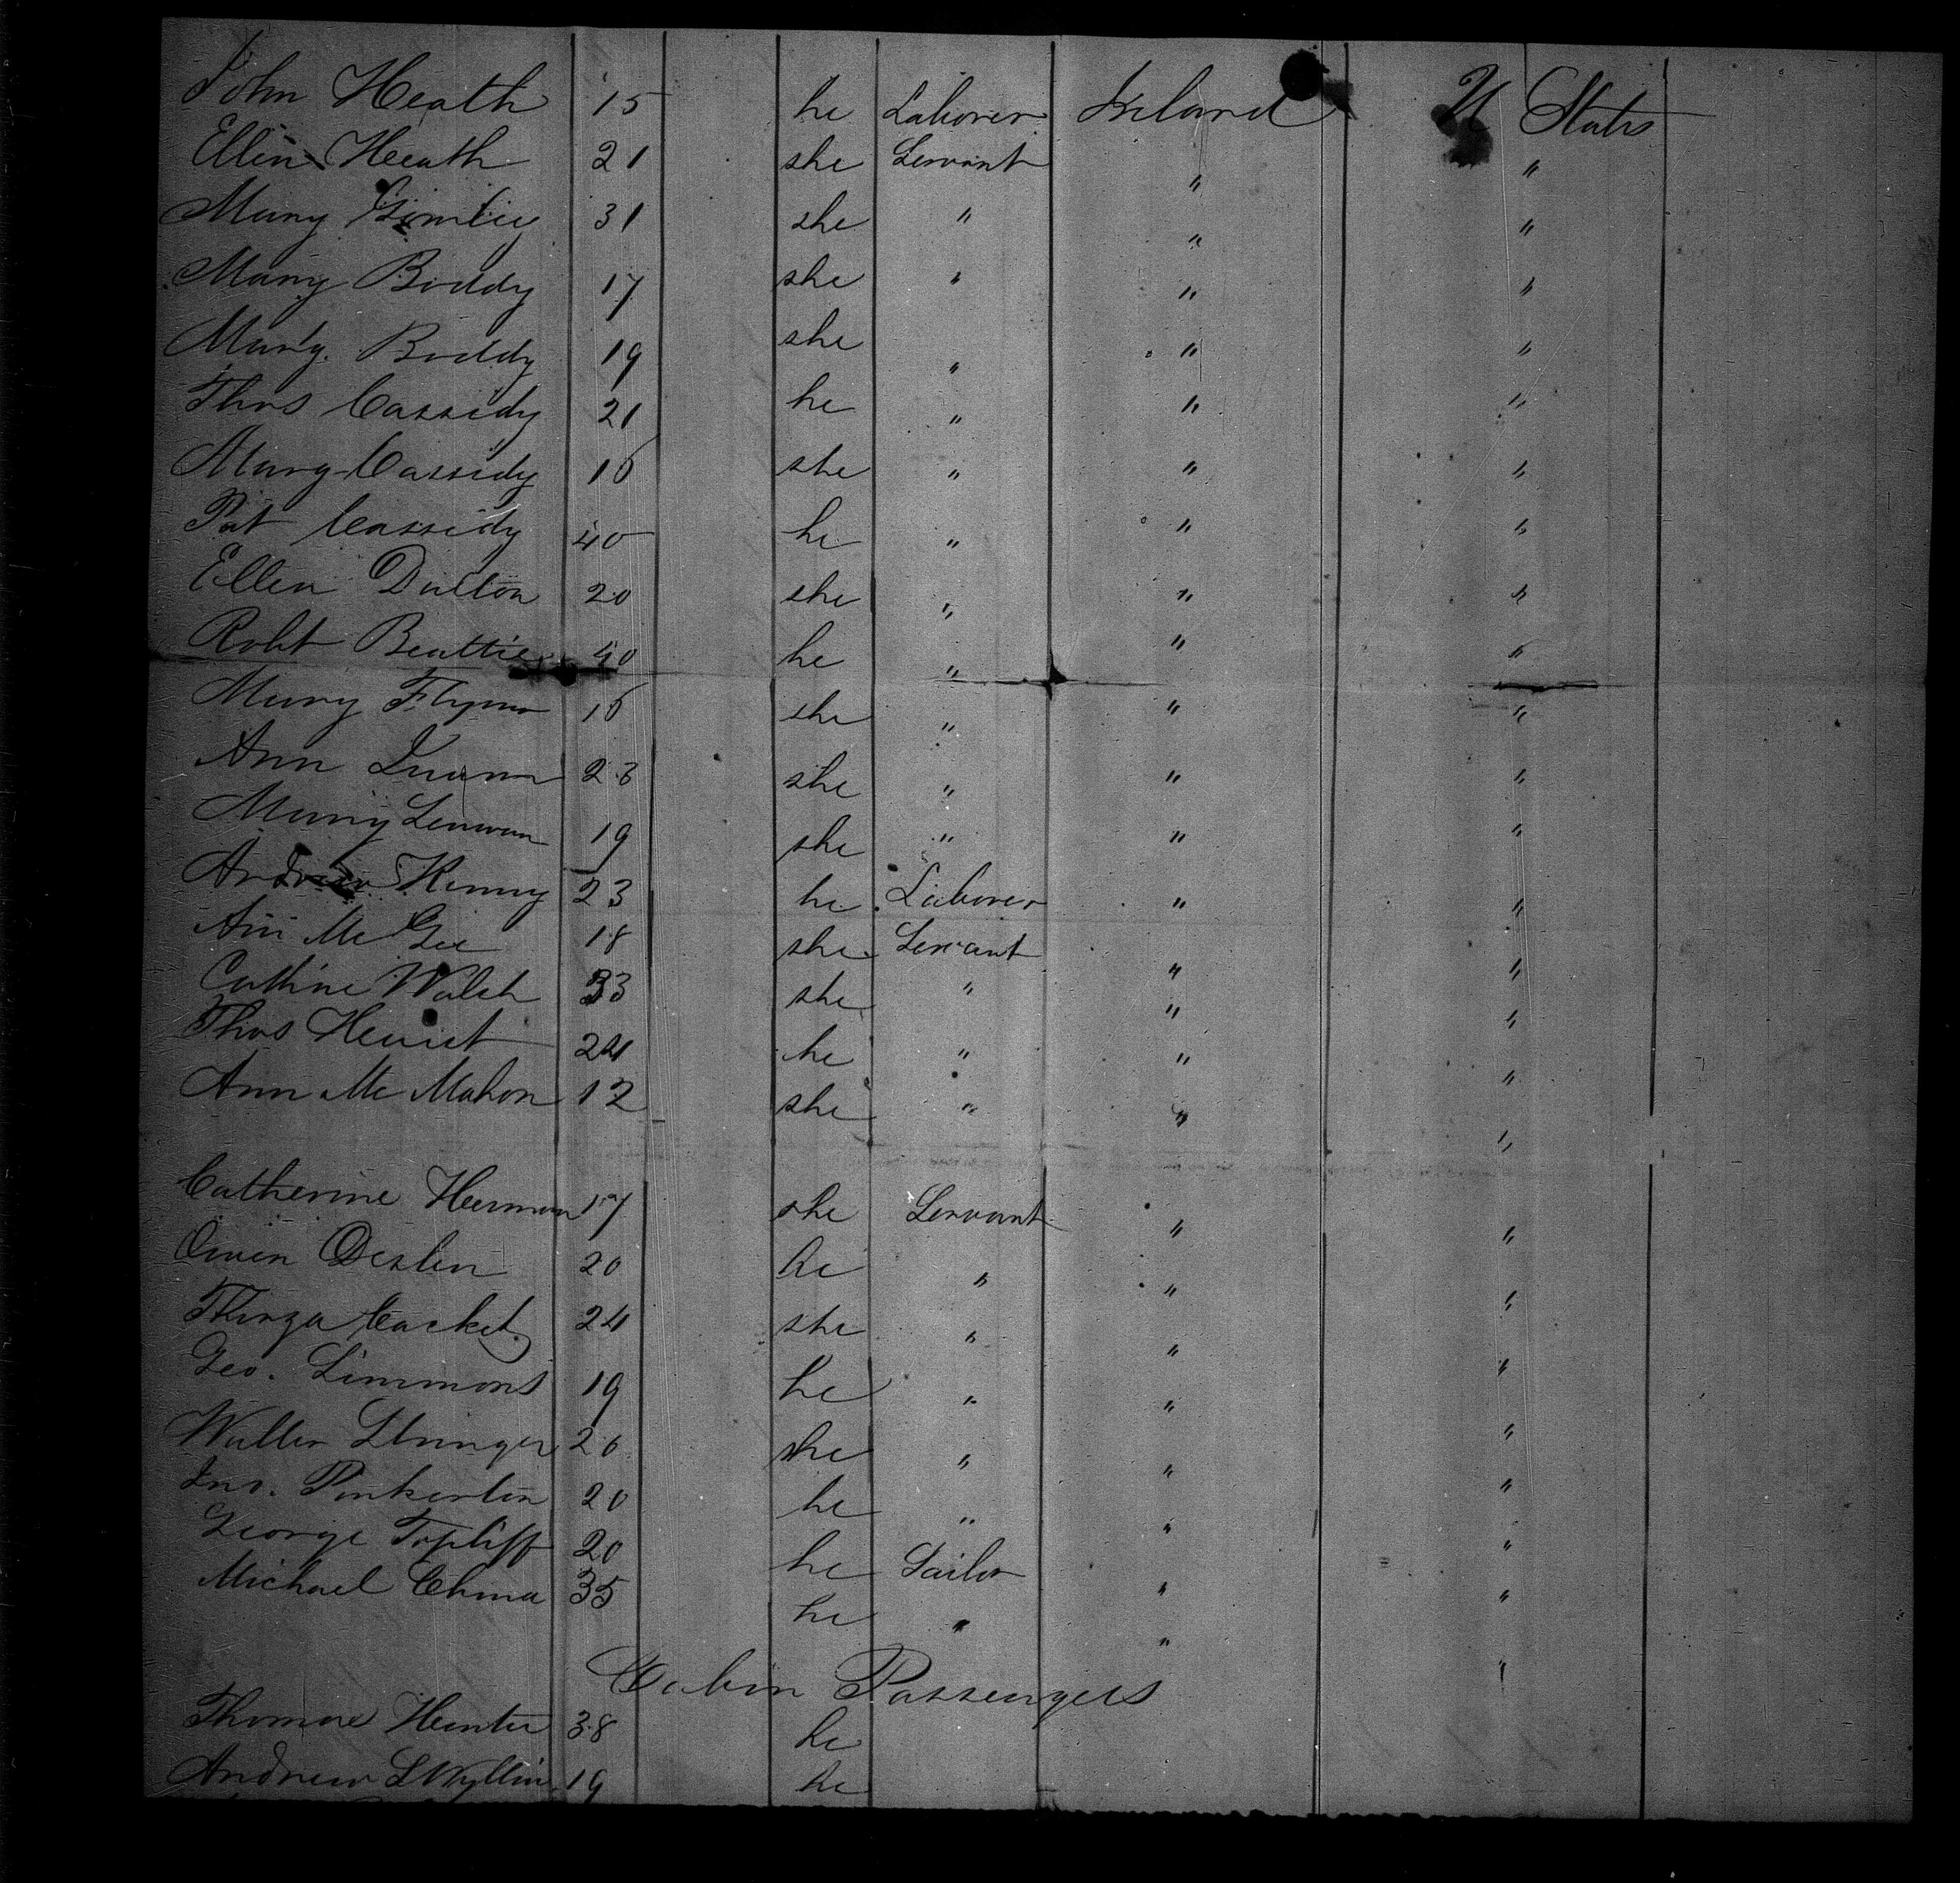 John Heath 15 he Laborer Ireland U States
Ellin Heath 21 she Servant " "
Mary 31 she " " "
Mary Boddy 17 she " " "
Marg. Boddy 19 she " " "
Thos Cassidy 21 he " " "
Mary Cassidy 16 she " " "
Pat Cassidy 40 he " " "
Ellen Dalton 20 she " " "
Robt Beattie 40 he " " "
Mary Flynn 16 she " " "
Ann 23 she " " "
Mary 19 she " " "
Andrew Kenny 23 he Laborer " "
Ann Mc Gee 18 she Servant " "
Cathine Walsh 33 she " " "
Thos 24 he " " "
Ann Mc Mahon 12 she " " "
Catherine 17 she Servant " "
Owen Deslen 20 he " " "
Thirza Casket 24 she " " "
Geo. Simmons 19 he " " "
Walter Stringer 20 she " " "
Jno. Pinkerton 20 he " " "
George Topliff 20 he Sailor " "
Michael China 35 he " " "
Cabin Passengers
Thomas Hunter 38 he
Andrew S Wyllin 19 he